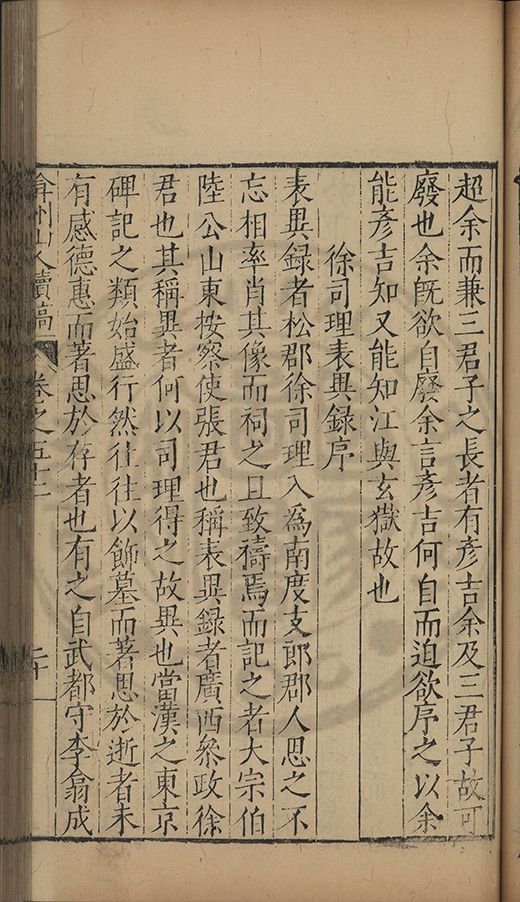 超余而兼三君子之長者有彥吉余及三君子故可
廢也余既欲自廢余言彥吉何自而迫欲序之以余
能彥吉知又能知江與玄獄故也
徐司理表異録序
表異録者松郡徐司理入為南度支郎郡人思之不
忘相率肖其像而祠之且致禱焉而記之者大宗伯
陸公山東按察使張君也稱表異録者廣西叅政徐
君也其稱異者何以司理得之故異也當漢之東京
碑記之類始盛行然往往以飾墓而著思於逝者未
有感德惠而著思於存者也有之自武都守李翕成
弇州山人續稿 卷之五十二 二十